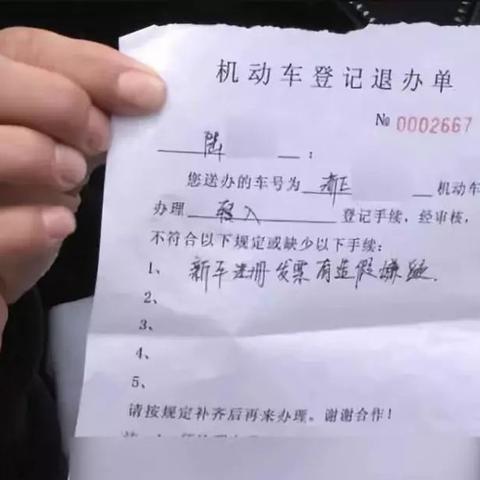 机动车登记退办单
№ 0002667
陆 :
您送办的车号为 机动车
办理 登记手续，经审核，
不符合以下规定或缺少以下手续：
1、 新车注册发票有造假嫌疑.
2、
3、
4、
5、
请按规定补齐后再来办理。谢谢合作！